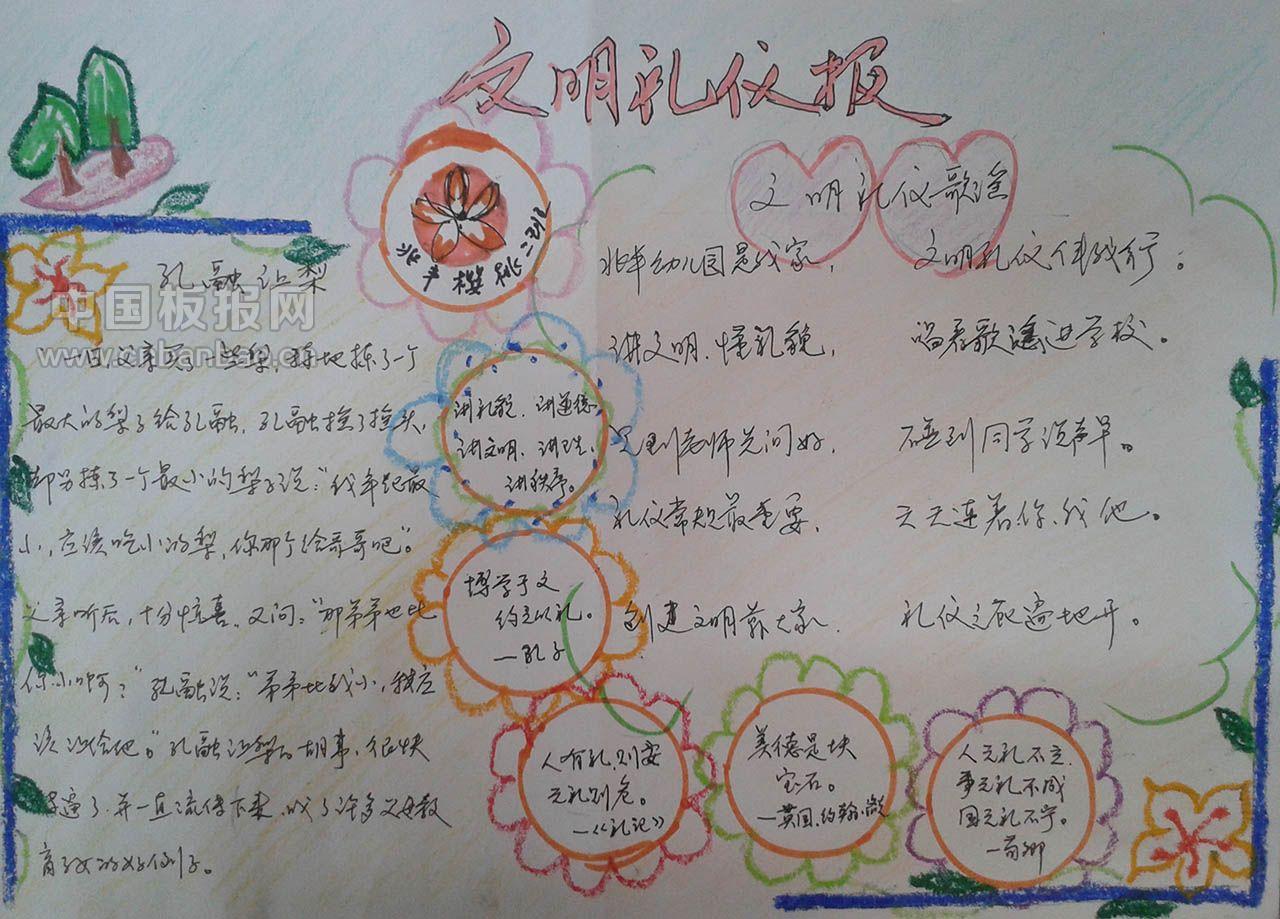 文明礼仪报
孔融让梨
一日父亲买了一些梨，拣地拣了一个
最大的梨子给孔融，孔融摇了摇头，
却另拣了一个最小的梨子说："我年纪最
小，应该吃小的梨，你那个给哥哥吧"。
父亲听后，十分惊喜，又问："那弟弟也比
你小啊？"孔融说："弟弟比我小，我应
该让给他。"孔融让梨的故事，很快
遍了，并一直流传下来，成了许多父母教
育子女的好例子。
中国板报网
www.cnbanbao.cn
讲礼貌、讲道德
讲文明、讲卫生、
讲秩序。
博学于文
约之以礼。
—孔子
人有礼，则安
无礼则危。
—《礼记》
美德是块
宝石。
—英国.约翰
人无礼不立
事无礼不成
国无礼不宁。
—荀卿
文明礼仪歌谣
幼儿园是我家， 文明礼仪伴我行。
讲文明、懂礼貌， 唱着歌谣进学校。
见到老师先问好， 碰到同学说声早。
礼仪常规最重要， 天天连着你、我他。
创建文明靠大家. 礼仪之花遍地开。